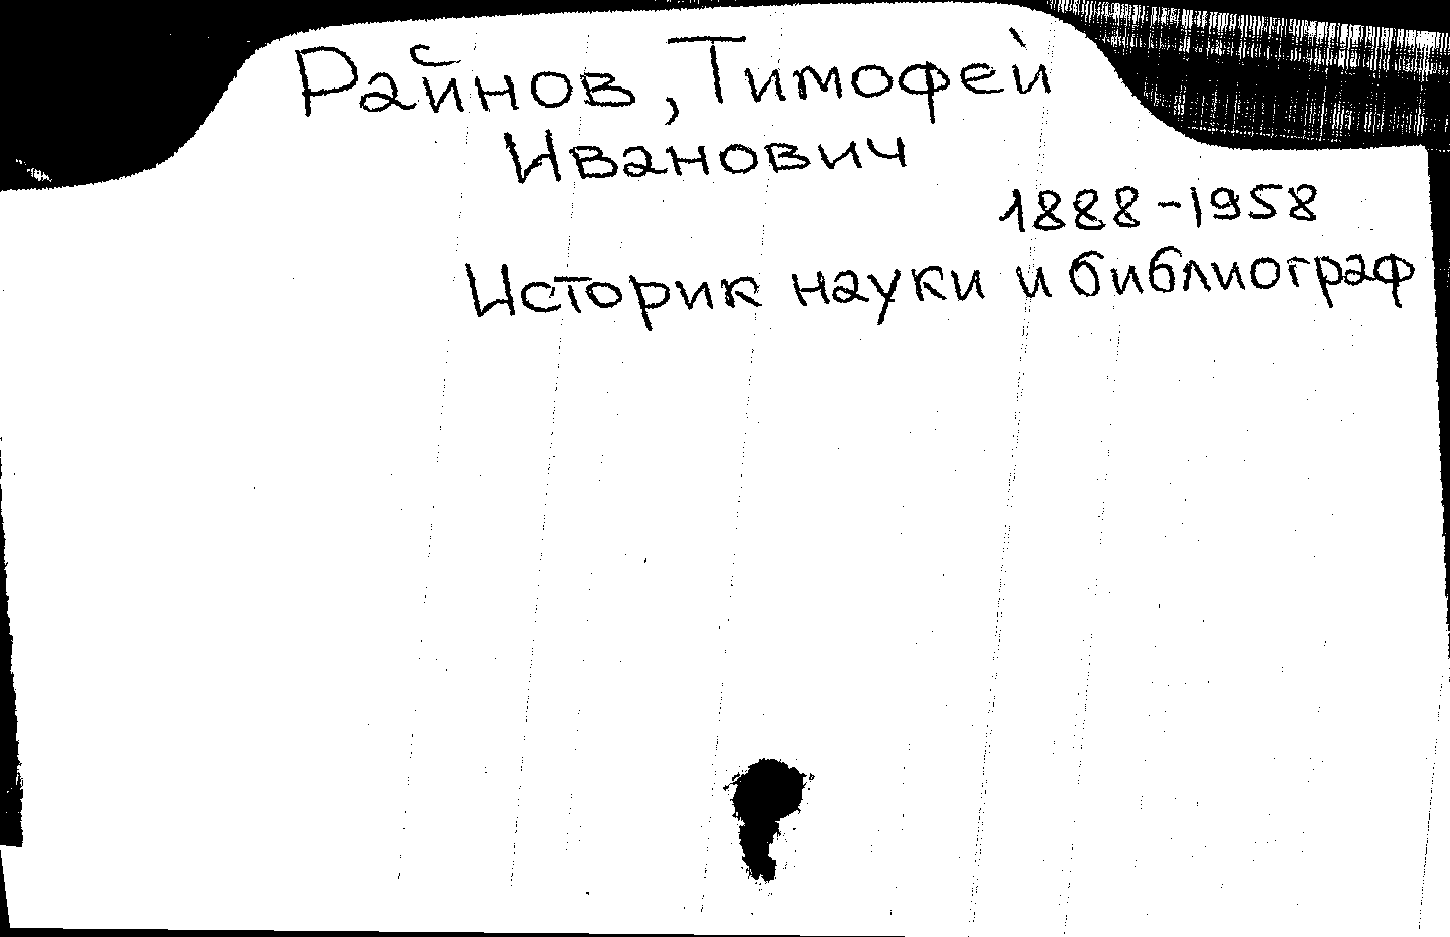 Райнов, Тимофей
Иванович
1888-1958
Историк науки и библиограф